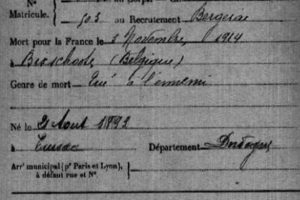 No
Matricule. 903 au Recrutement Bergerac
Mort pour la France le 2 Novembre 1914
à Bixschoote (Belgique)
Genre de mort Tué à l'ennemi
Né le 21 Août 1892
à Département Dordogne
Arrt municipal (pr Paris et Lyon),
à défaut rue et No.